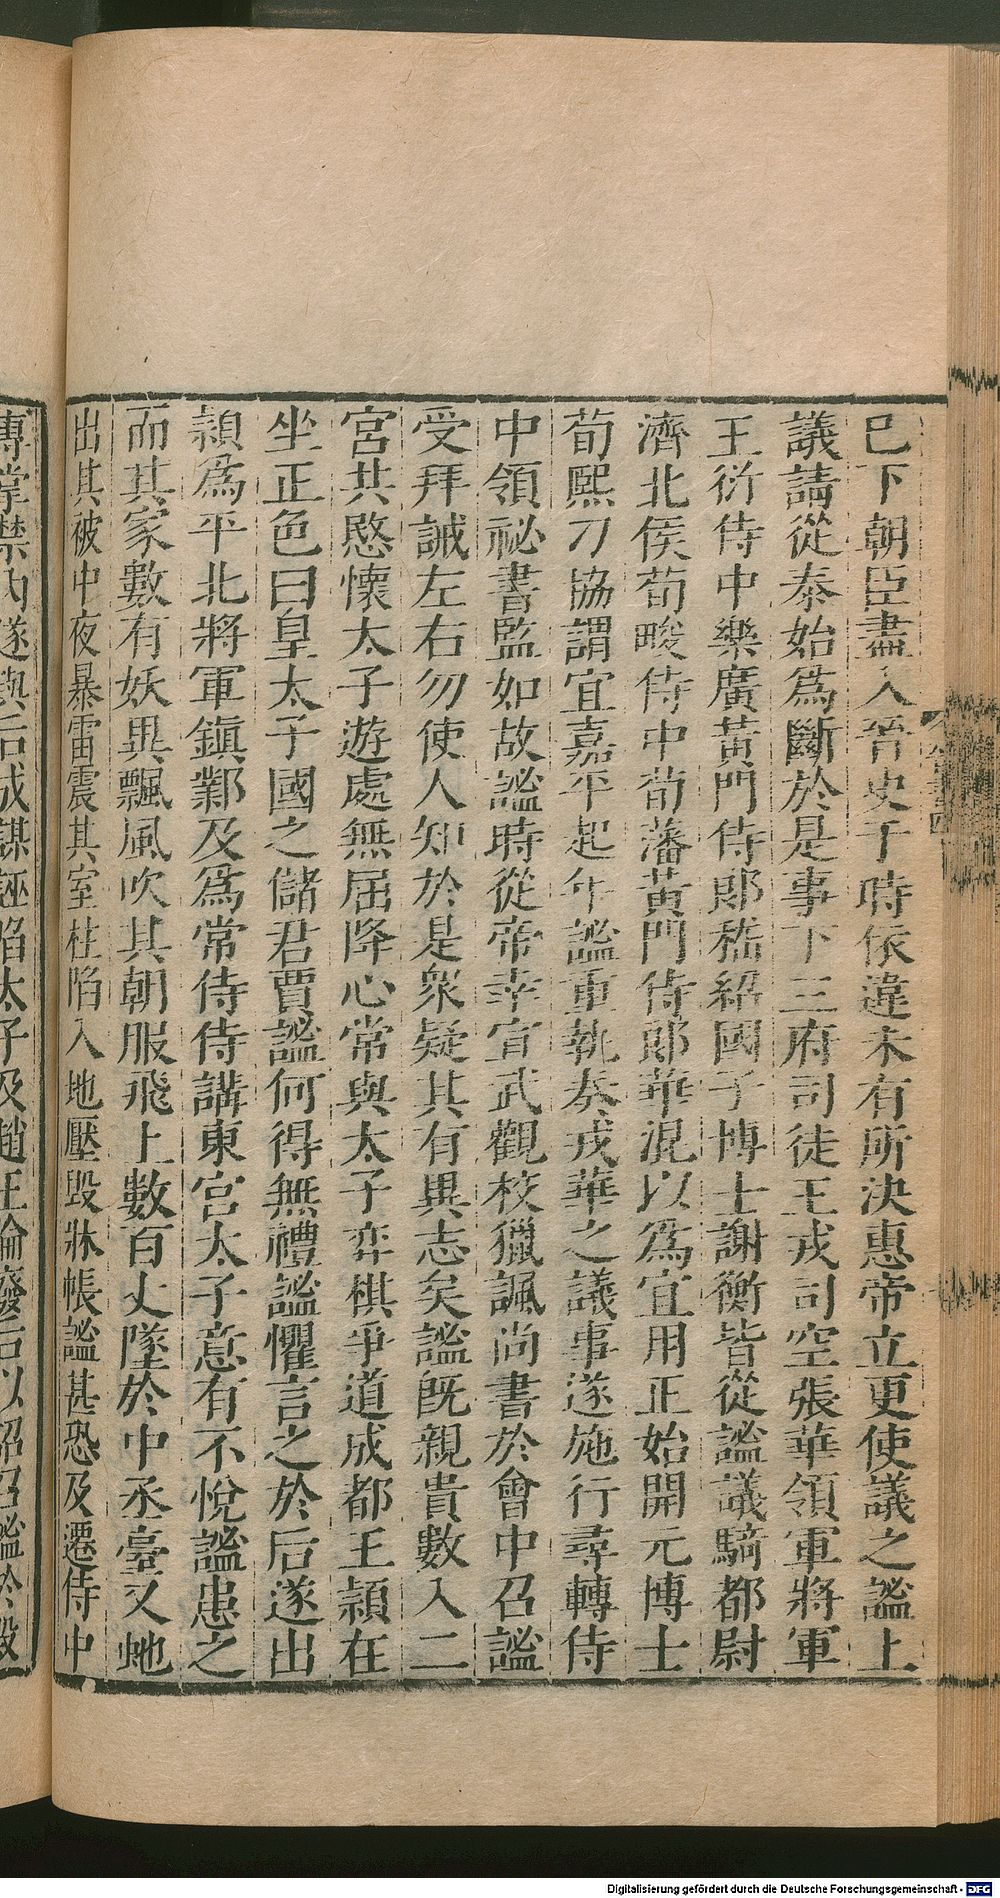 已下朝臣盡入晉史于時依違未有所決惠帝立更使議之謐上
議請從泰始爲斷於是事下三府司徒王戎司空張華領軍將軍
王衍侍中樂廣黃門侍郎嵇紹國子博士謝衡皆從謐議騎都尉
濟北侯荀畯侍中荀藩黃門侍郎華混以爲宜用正始開元博士
荀熙刁協謂宜嘉平起年謐重執奏戎華之議事遂施行尋轉侍
中領祕書監如故謐時從帝幸宣武觀校獵諷尚書於會中召謐
受拜誡左右勿使人知於是衆疑其有異志矣謐既親貴數入二
宮共愍懷太子遊處無屈降心常與太子弈棋爭道成都王穎在
坐正色曰皇太子國之儲君賈謐何得無禮謐懼言之於后遂出
穎爲平北將軍鎮鄴及爲常侍侍講東宮太子意有不悅謐患之
而其家數有妖異飄風吹其朝服飛上數百丈墜於中丞臺又虵
出其被中夜暴雷震其室柱陷入地壓毀牀帳謐甚恐及遷侍中
專掌禁內遂與后成謀誣陷太子及趙王倫廢后以詔召謐於殿
Digitalisierung gefördert durch die Deutsche Forschungsgemeinschaft - DFG